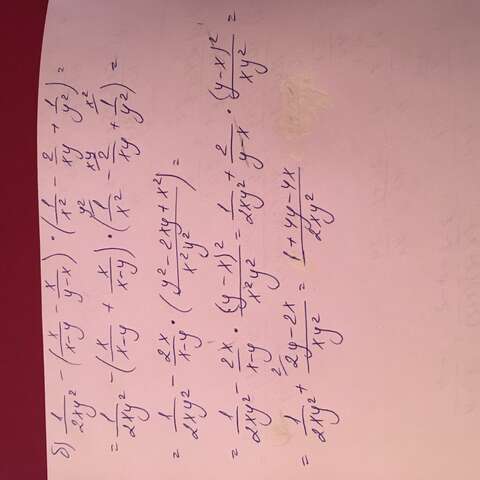 б) 1/(2xy²) - (x/(x-y) - x/(y-x)) · (1/x² - 2/(xy) + 1/y²) =
= 1/(2xy²) - (x/(x-y) + x/(x-y)) · (1/x² - 2/(xy) + 1/y²) =
= 1/(2xy²) - 2x/(x-y) · ((y² - 2xy + x²)/(x²y²)) =
= 1/(2xy²) - 2x/(x-y) · (y-x)²/(x²y²) = 1/(2xy²) + 2/(y-x) · (y-x)²/(xy²) =
= 1/(2xy²) + (2y-2x)/(xy²) = (1+4y-4x)/(2xy²)